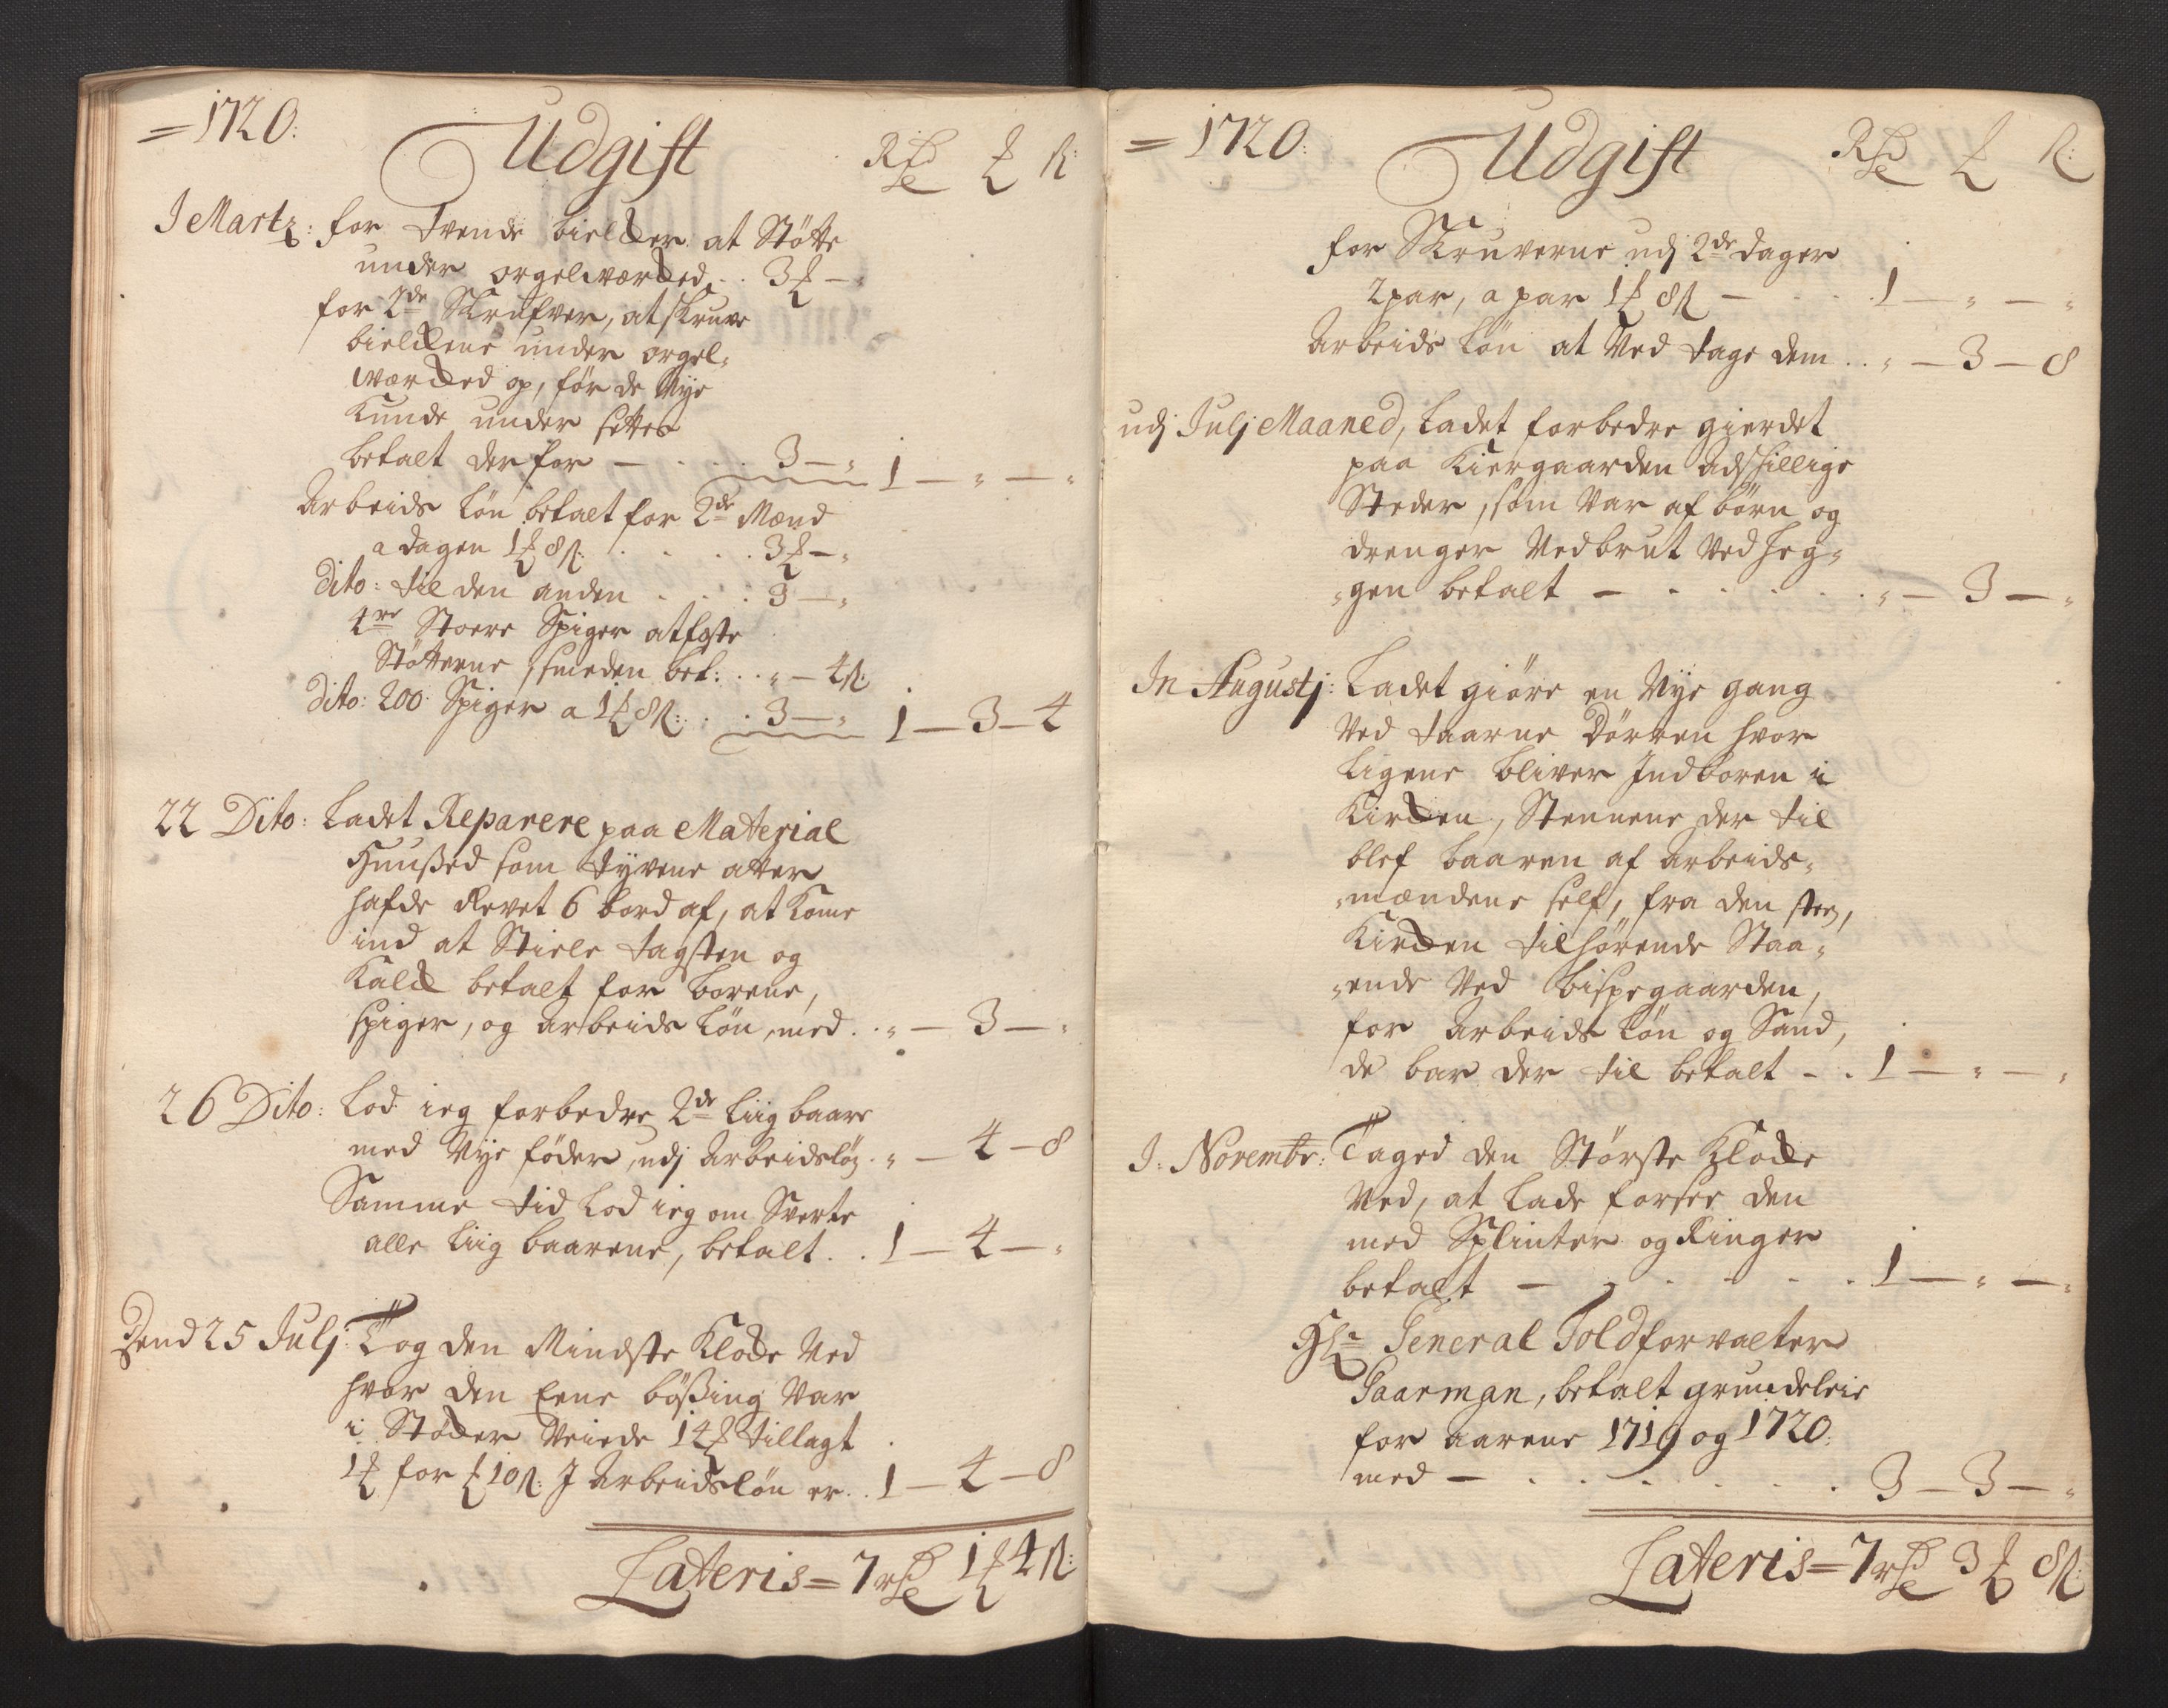 =1720:
Udgift
Rdr ℔ ß:
I Martz: for tvende bielker at Støtte
under orgelværked .. 3 ℔ - "
for 2de Skrufver, at skrue
bielkene under orgel-
værked op, før de Nye
kunde under settes
betalt der for - . . . 3 - " 1 - " - "
Arbeids løn betalt for 2de Mænd
a dagen 1 ℔ 8 ß: . . . . 3 ℔ - "
dito: til den anden . . . 3 - "
4re Stoere Spiger at feste
Støtterne, smeden bet: . . " - 4 ß:
dito: 200: Spiger a 1 ℔ 8 ß: . . 3 - " 1 - 3 - 4
22 Dito: Ladet Reparere paa Material
Huußed som tyvene atter
hafde Revet 6 bord af, at kome
ind at Stiele tagsten og
kalk betalt for borene,
spiger, og arbeids løn, med . . " - 3 - "
26 Dito: Lod ieg forbedre 2de liig baare
med Nye føder, udj arbeidsløn . " - 4 - 8
Samme tid lod ieg om Sverte
alle liig baarene, betalt . . 1 - 4 - "
Dend 25 Julj: Tog den Mindste Klocke Ved
hvor den Eene bößing var
i Støcker Veiede 14 ℔ tillagt
1 ℔ for ℔ 10 ß: J Arbeidsløn er . . 1 - 4 - 8
Lateris = 7 rdr 1 ℔ 4 ß:
= 1720:
Udgift
Rdr ℔ ß:
for Skruverne udj 2de dager
2 par, a par 1 ℔ 8 ß - . . . 1 - " - "
Arbeids løn at Ved tage dem . . " - 3 - 8
udj Julj Maaned, Ladet forbedre gierdet
paa Kiergaarden adskillige
Steder, som var af børn og
drenger Nedbrut Ved heg-
"gen betalt - . . . . . " - 3 - "
In Augustj: Ladet giöre en Nye gang
Ved taarne Dörren hvor
Ligene bliver Indboren i
Kircken, Stennene der til
blef baaren af arbeids-
"mændene self, fra den sted,
Kircken tilhørende Staa-
"ende Ved bispegaarden,
for arbeids løn og Sand,
de bar der til betalt - . 1 - " - "
J: Novembr: Taged den Største Klocke
Ned, at lade forsee den
med Splinter og Ringer
betalt - . . . . . 1 - " - "
Hr General Toldforvalter
Gaarman, betalt grundeleie
for aarene 1719 og 1720:
med - . . . . . . 3 - 3 - "
Lateris = 7 rdr 3 ℔ 8 ß: